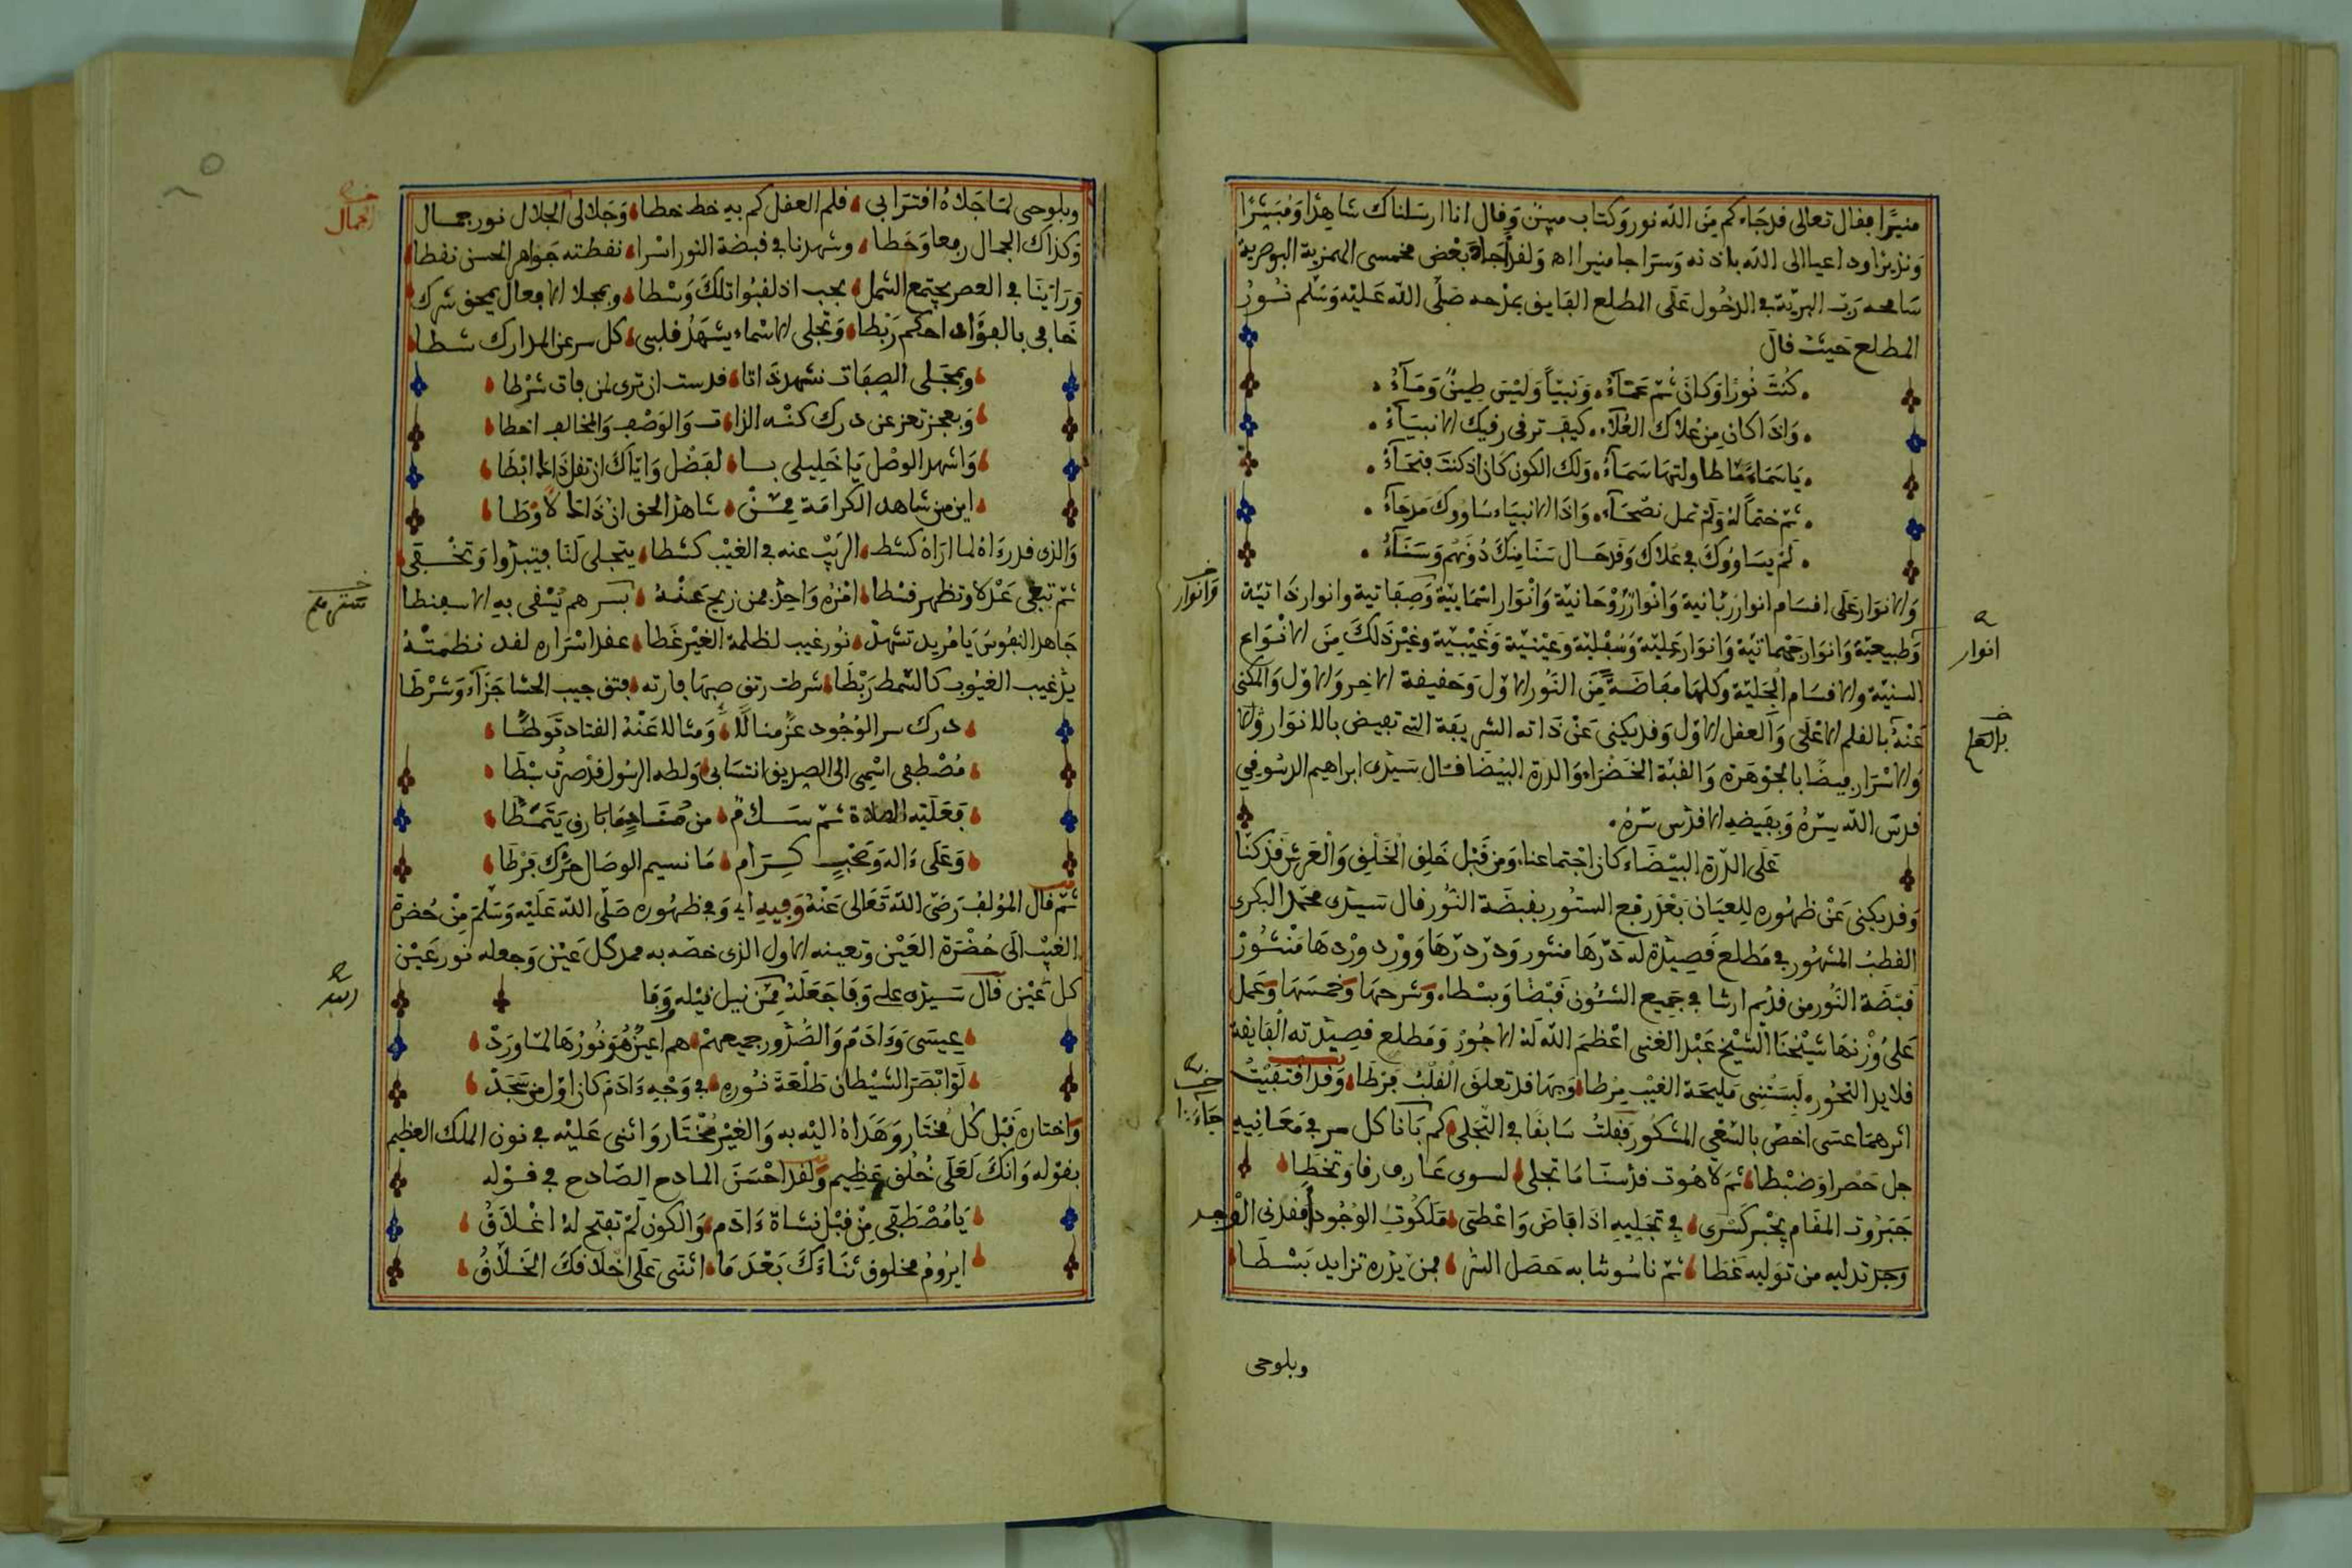 منيرا فقال تعالى قد جاءكم من الله نور وكتاب مبين وقال انا ارسلناك شاهدا ومبشرا
ونذيرا وداعيا الى الله باذنه وسراجا منيرا اه ولقد اجاد بعض مخمسى الهمزية البوصرية
سامحه رب البرية في الدخول على المطلع الفايق بمدحه صلى الله عليه وسلم نور
المطلع حيث قال
كنت نورا وكان ثم عماء ونبيا وليس طين وماء
واذا كان من علاك العلاء كيف ترقى رقيك الانبياء
يا سماء ما طاولتها سماء ولك الكون كان اذ كنت فتحاء
ثم ختما له ولم تمل نصحاء واذا الانبياء ساووك مدحاء
لم يساووك في علاك وقد حال سنا منك دونهم وسناء
والانوار على اقسام انوار ربانية وانوار روحانية وانوار اسمايية وصفاتية وانوار ذاتية
وطبيعية وانوار جثمانية وانوار علية وسفلية وعينية وغيبية وغير ذلك من الانواع
السنية والاقسام الجلية وكلها مفاضة من النور الاول وحقيقة الاخر والاول والمكنى
عنه بالقلم الاعلى والعقل الاول وقد يكنى عن ذاته الشريفة التي تفيض بالانوار والا
والاسرار فيضا بالجوهرة والقبة الخضراء والدرة البيضا قال سيدى ابراهيم الدسوقي
قدس الله سره وبفيضه الاقدس سره
على الدرة البيضاء كان اجتماعنا ومن قبل خلق الخلق والعرش قد كنا
وقد يكنى عن ظهوره للعيان بعد رفع الستور بقبضة النور قال سيدى محمد البكرى
القطب المشهور في مطلع قصيدة له درها منثور ودر درها وورد وردها منشور
قبضة النور من قديم ارتنا في جميع الشئون قبضا وبسطا وشرحها وخمسها وعمل
على وزنها شيخنا الشيخ عبد الغنى اعظم الله له الاجور ومطلع قصيدته الفايقة
قلايد النحور لبستنى مليحة الغيب مرطا وبها قد تعلق القلب فرطا وقد اقتفيت
اثرهما عسى اخص بالسعي المشكور فقلت سابقا في التجلى كم بانا كل سر في معانيه
جل حصرا وضبطا ثم لاهوت قدسنا ما تجلى لسوى عارف رقا وتخطا
جبروت المقام يجبر كسرى في تجليه اذ افاض واعطى ملكوت الوجود افقدنى الوجد
وجد تدليه من توليه غطا ثم ناسوتنا به حصل الشر فمن يدره تزايد بسطا
وبلوحى
وانوار
انوار
وبلوحى لما جلاه اقترابي قلم العقل كم به خط خطا وجلالى الجلال نور جمال
وكذاك الجمال رمعا وحطا وشهدنا في قبضة النور اسرا نقطته جواهر الحسن نقطا
وراينا في العصر يجتمع الشمل بجب اذ لقبوا تلك وسطا وبمجلا الافعال يمحق شرك
خافى بالفؤاد احكم ربطا وتجلى الاسماء يشهد قلبى كل سر عن المدارك شطا
وبمجلى الصفات نشهد ذاتا قدست ان ترى لمن فات شرطا
وبعجز تعز عن درك كنه الذات والوصف والمخالف اخطا
واشهد الوصل يا خليلى بسا لفضل واياك ان تقل ذاك ابطا
اين من شاهد الكرامة ممن شاهد الحق ان ذاك لاوطا
والذى قد رءاه لما اراه كشط الريب عنه في الغيب كشطا يتجلى لنا فيبدوا وتخفى
ثم تبقى عدلا وتظهر قسطا امره واحد فمن زيح عنه بسر هم يسقى به الاسفنطا
جاهد النفوس يا مريد تشهد نور غيب لظلمة الغير غطا عقد اسراره لقد نظمته
يد غيب الغيوب كالسمط ربطا شرطت رتق صبها فارته فتق جيب الحشا جزاء وشرطا
درك سر الوجود عز منالا ومثالا عنه الفتاد توطا
مصطفى اسمى الى الصديق انتسابى ولطه الرسول قد صرت سبطا
فعليه الصلاة ثم سلام من صفاحها بارق يتمطا
وعلى ءاله وصحب كرام ما نسيم الوصال حرك فرطا
ثم قال المؤلف رضى الله تعالى عنه وفيه اي وفي ظهوره صلى الله عليه وسلم من حضرة
الغيب الى حضرة العين وتعينه الاول الذى خصه به ممد كل عين وجعله نور عين
كل عين قال سيدى على وفا جعلنا ممن نيل نيله وفا
عيسى وءادم والصدور جميعهم هم اعين هو نورها لما ورد
لو ابصر الشيطان طلعة نوره في وجه ءادم كان اول من سجد
واختاره قبل كل مختار وهداه اليه به والغير مختار واثنى عليه في نون الملك العظيم
بقوله وانك لعلى خلق عظيم ولقد احسن المادح الصادح في قوله
يا مصطفى من قبل نشاة ءادم والكون لم تفتح له اغلاق
ايروم مخلوق ثناءك بعد ما اثنى على اخلاقك الخلاق
الجمال